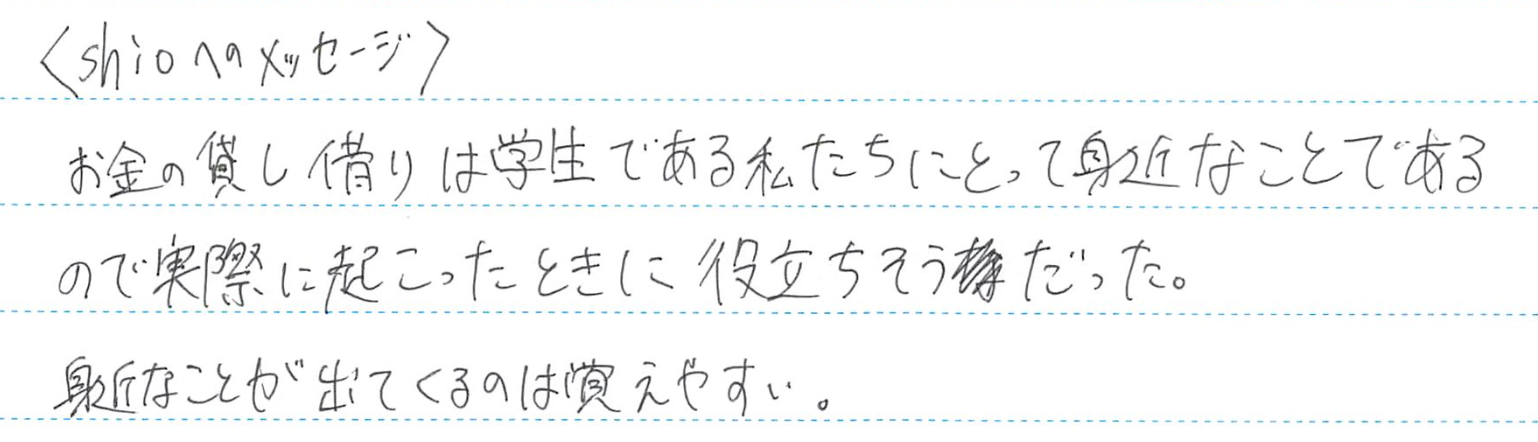 〈shioへのメッセージ〉
お金の貸し借りは学生である私たちにとって身近なことである
ので実際に起こったときに役立ちそうだった。
身近なことが出てくるのは覚えやすい。